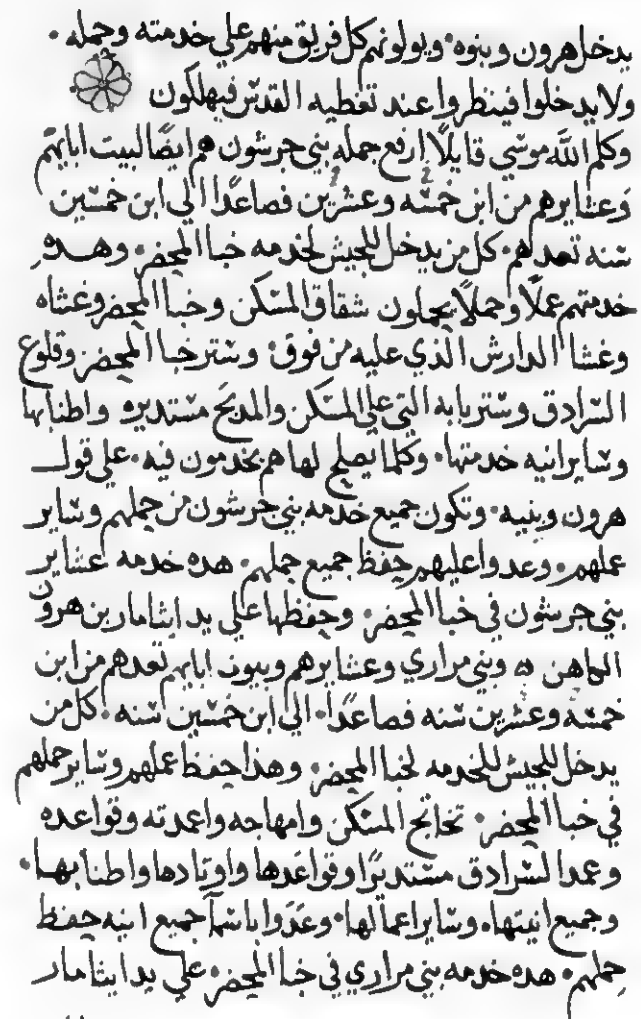 يدخل هرون وبنوه · ويولونهم كل فريق منهم علي خدمته وحمله ·
ولا يدخلوا فينظروا عند تغطيه القدس فيهلكون
وكلم الله موسي قايلاً ارفع جمله بني جرشون هم ايضًا لبيت ابايهم
وعشايرهم من ابن خمسه وعشرين فصاعدًا الي ابن خمسين
سنه تعدهم · كل من يدخل للجيش لخدمه خبا المحضر · وهده
خدمتهم عملًا وحملًا يحملون شقاق المسكن وخبا المحضر وغشاه
وغشا الدارش الذي عليه من فوق · وستر خبا المحضر وقلوع
السرادق وستر بابه التي علي المسكن والمدبح مستديرو واطنابها
وساير انيه خدمتها · وكلما يصلح لها هم يخدمون فيه · علي قول
هرون وبنيه · وتكون جميع خدمه بني جرشون من حملهم وساير
عملهم · وعدوا عليهم حفظ جميع حملهم · هده خدمه عشاير
بني جرشون في خبا المحضر · وحفظها علي يد ايثامار بن هرون
الكاهن ۞ وبني مراري وعشايرهم وبيوت ابايهم تعدهم من ابن
خمسه وعشرين سنه فصاعدًا · الي ابن خمسين سنه · كل من
يدخل للجيش للخدمه لخبا المحضر · وهذا حفظ عملهم وساير حملهم
في خبا المحضر · تخاتج المسكن وامهاجه واعمدته وقواعده
وعمد السرادق مستديرًا وقواعدها واوتادها واطنابها ·
وجميع انيتها · وساير اعمالها · وعدوا باسما جميع انيه حفظ
حملهم · هده خدمه بني مراري في خبا المحضر · علي يد ايثامار